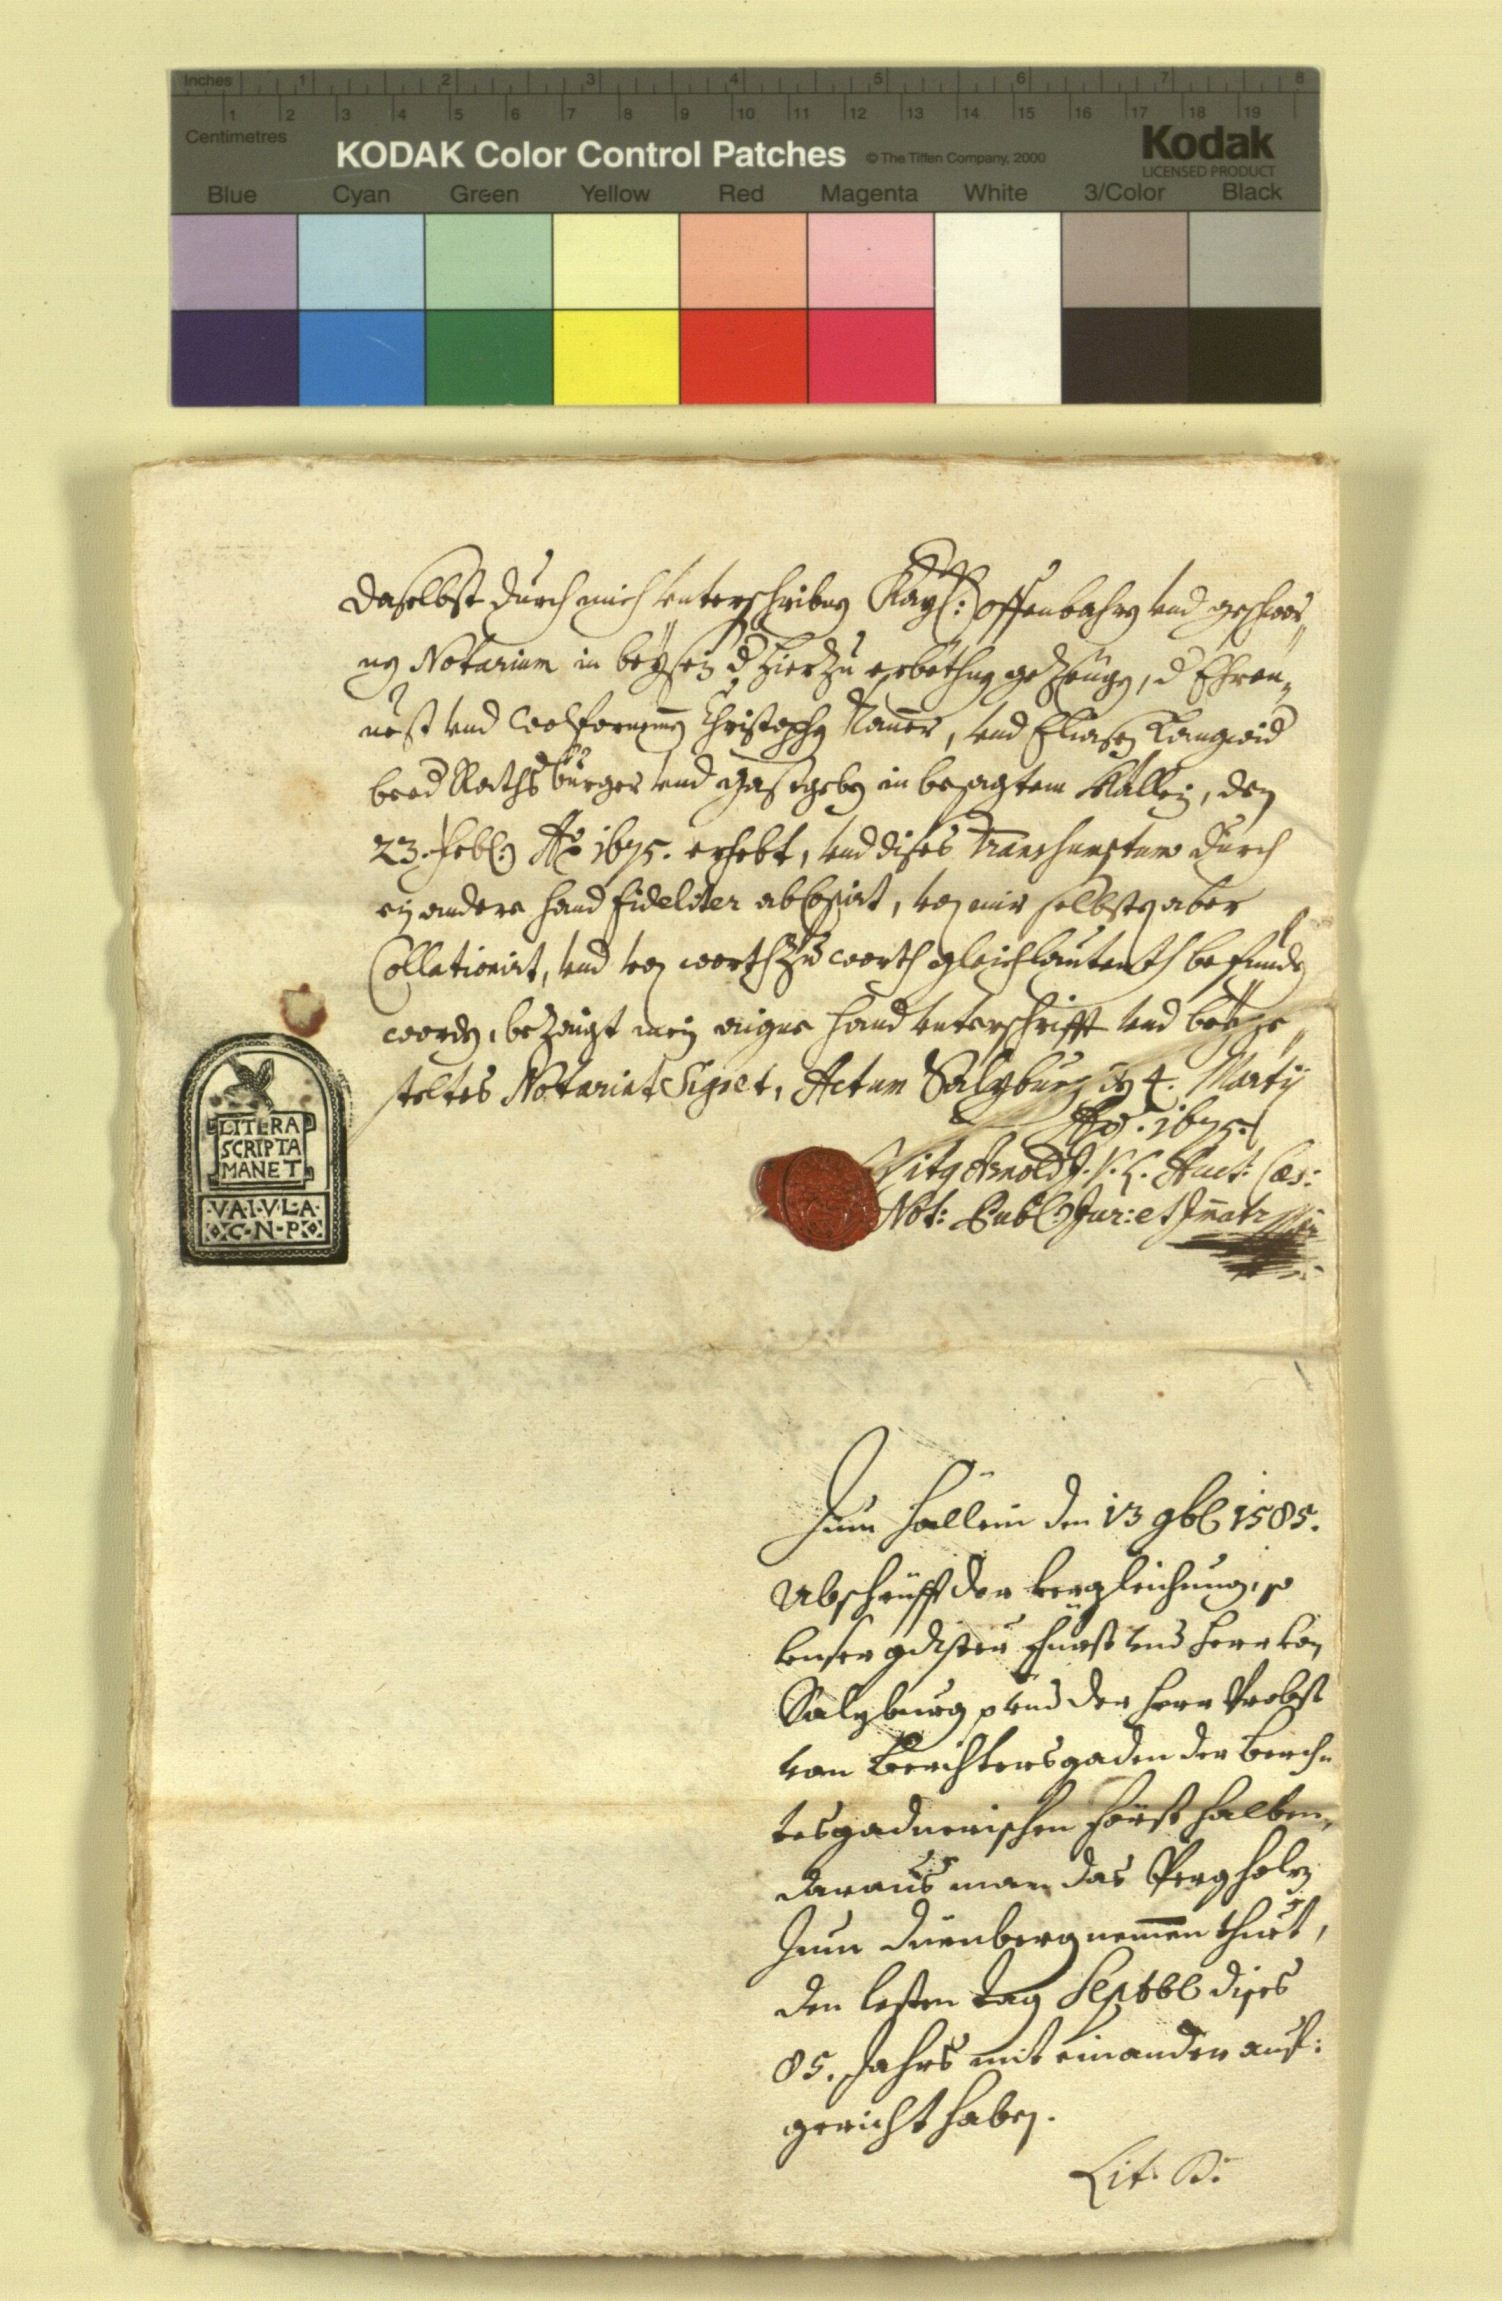 Inches 1 2 3 4 5 6 7 8
1 2 3 4 5 6 7 8 9 10 11 12 13 14 15 16 17 18 19
Centimetres
KODAK Color Control Patches © The Tiffen Company, 2000 Kodak
LICENSED PRODUCT
Blue Cyan Green Yellow Red Magenta White 3/Color Black
daselbst durch mich unterschribnen Kayl: offenbahren und geschwor„
nen Notarium in beysein d hierzu erbethnen gezeugen, d Ehren„
vest und Christophen und Eliasen
beed Rathsbürger und Gastgeben in besagtem Hallein, den
23. Feb: Ao 1675. erhebt, und dises Transsumptum durch
ein andere hand fideliter abCopirt, von mir selbsten aber
Collationirt, und von worth zu worth gleichlautenth befunden
worden, bezeugt mein aigne hand unterschrifft und beyge„
steltes Notariat Signet, Actum Salzburg den 4. Martij
Ao. 1675.
LITERA
SCRIPTA
MANET
V·A·I·V·L·A·
C·N·P
Vitus Arnold J.V.L. Auct: Cæs:
Not: Publ: Jur: et Imatr
Zum Hällein den 13 9bl 1585.
Abschrüfft der vergleichung, so
unser gdister Fürst und herr von
Salzburg p und der herr Probst
von Berchtersgaden der Berch„
tesgadnerischen Först halben,
daraus man das Perg holz
zum Dürnberg nemen thuet,
den lesten tag Septbl dises
85. Jahrs mit einander auf:
gericht haben.
Lit: B: